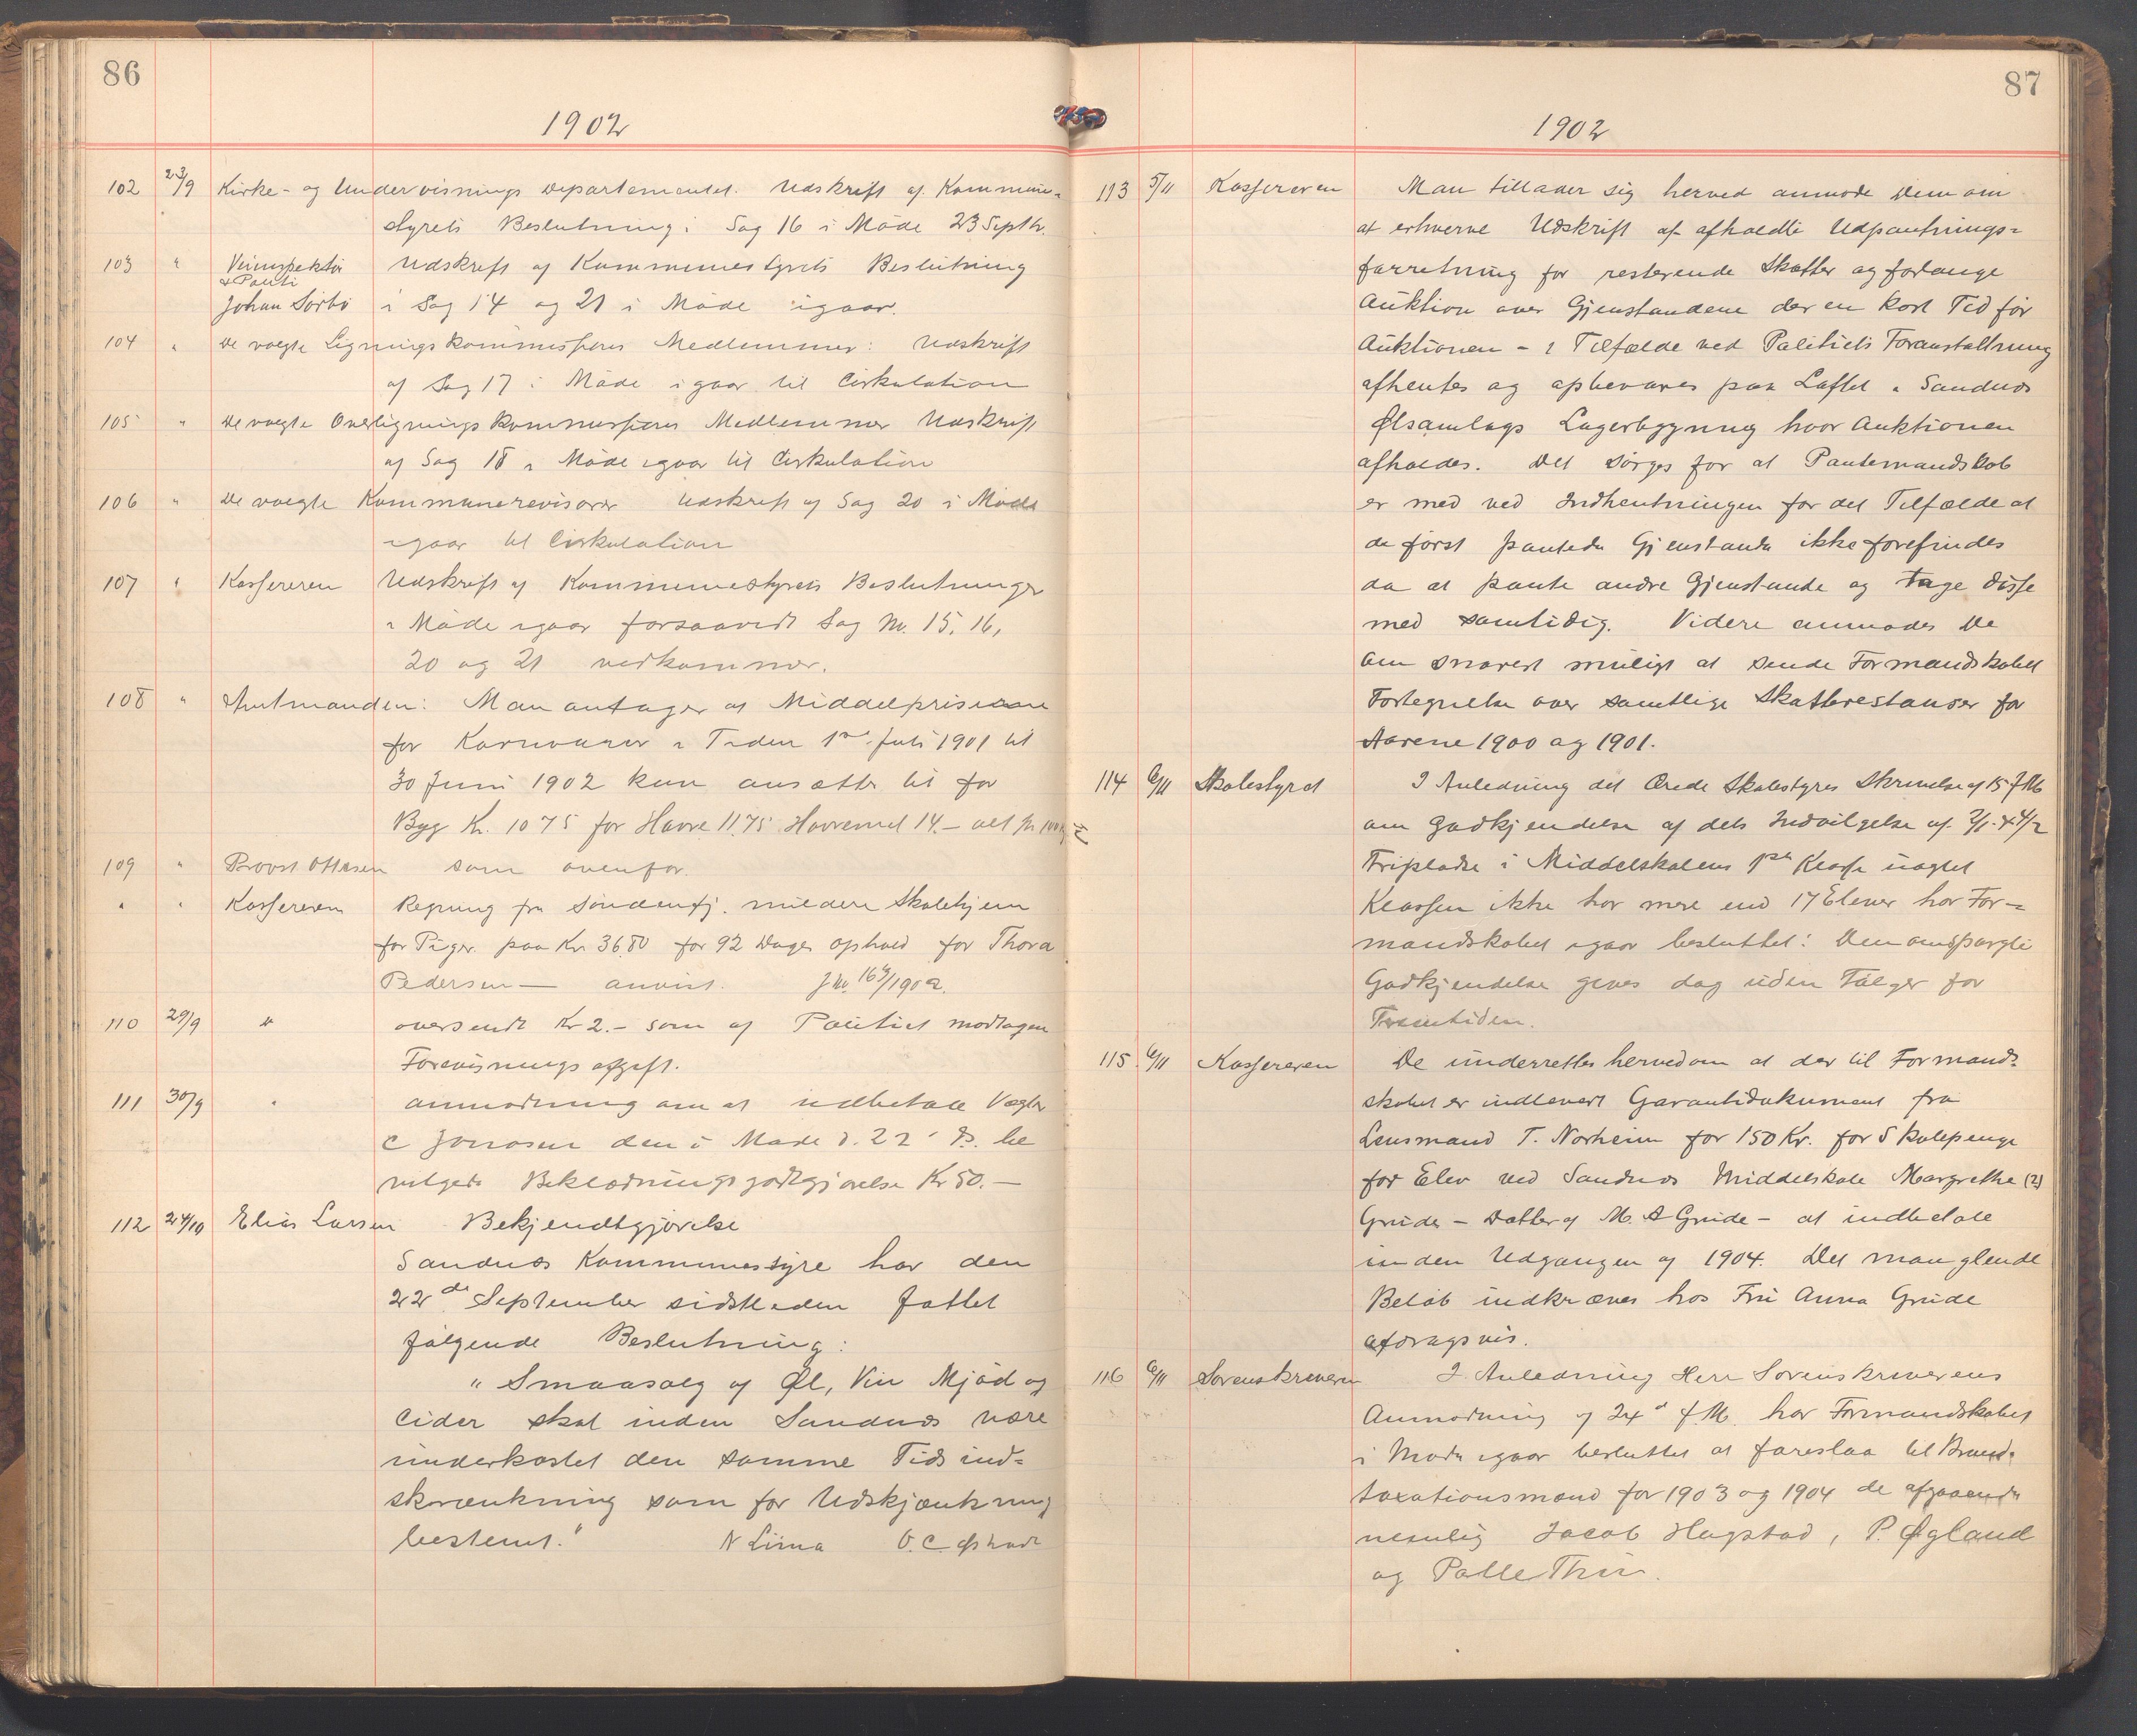 86
1902
102 23/9 Kirke- og Undervisnings Departementet. Udskrift af Kommune-
styrets Beslutning i Sag 16 i Møde 23 Septbr.
103 " Veiinspektør Udskrift af Kommunestyrets Beslutning
& Politi
Johan Sørbø i Sag 14 og 21 i Møde igaar.
104 " De valgte Ligningskommissions Medlemmer: Udskrift
af Sag 17 i Møde igaar til Cirkulation
105 " De valgte Overligningskommissions Medlemmer Udskrift
af Sag 18 i Møde igaar til Cirkulation
106 " De valgte Kommunerevisorer Udskrift af Sag 20 i Møde
igaar til Cirkulation
107 " Kassereren Udskrift af Kommunestyrets Beslutninger
i Møde igaar forsaavidt Sag No. 15, 16,
20 og 21 vedkommer.
108 " Amtmanden: Man antager at Middelpriserne
for Kornvarer i Tiden 1ste Juli 1901 til
30 Juni 1902 kan ansættes til for
Byg Kr. 10 75 for Havre 11.75 Havremel 14.- alt pr 100 kg
109 " Provst Ottesen som ovenfor.
" " Kassereren Regning fra Søndenfj. mildere Skolehjem
for Piger. paa Kr 36.80 for 92 Dages ophold for Thora
Pedersen — anvist. J No. 164/1902.
110 29/9 " oversendt Kr 2.- som af Politiet modtagen
Forevisningsafgift.
111 30/9 " anmodning om at udbetale Vægter
C Jonasen den i Møde d. 22' ds. be
vilgede Beklædningsgodtgjørelse Kr 50.—
112 24/10 Elias Larsen Bekjendtgjørelse
Sandnæs Kommunestyre har den
22de September sidstleden fattet
følgende Beslutning:
" Smaasalg af Øl, Vin Mjød og
Cider skal inden Sandnæs være
underkastet den samme Tidsind-
skrænkning som for Udskjænkning
bestemt." N Lima O. C.
87
1902
113 5/11 Kassereren Man tillader sig herved anmode Dem om
at erhverve Udskrift af afholdte Udpantnings-
forretning for resterende Skatter og forlange
Auktion over Gjenstandene der en kort Tid før
Auktionen - i Tilfælde ved Politiets Foranstaltning
afhentes og opbevares paa Loftet i Sandnæs
Ølsamlags Lagerbygning hvor Auktionen
afholdes. Det sørges for at Pantemandskab
er med ved Indhentningen for det Tilfælde at
de først pantede Gjenstande ikke forefindes
da at pante andre Gjenstande og tage disse
med samtidig. Videre anmodes De
om snarest muligt at sende Formandskabet
Fortegnelse over samtlige Skatterestanser for
Aarene 1900 og 1901.
114 6/11 Skolestyret I Anledning det Ærede Skolestyres Skrivelse af 15 f.M
om Godkjendelse af dets Indvilgelse af 2/1 & 4/2
Fripladse i Middelskolens 1ste Klasse uagtet
Klassen ikke har mere end 17 Elever har For-
mandskabet igaar besluttet: Den omspørgte
Godkjendelse gives dog uden Følger for
Fremtiden.
115 6/11 Kassereren De underrettes herved om at der til Formand-
skabet er indleveret Garantidokument fra
Lensmand T. Norheim for 150 Kr. for Skolepenge
for Elev ved Sandnæs Middelskole Margrethe (2)
Grude - Datter af M. A Grude - at indbetale
inden Udgangen af 1904. Det manglende
Beløb indkræves hos Fru Anna Grude
afdragsvis.
116 6/11 Sorenskriveren I Anledning Herr Sorenskriverens
Anmodning af 24d f.M. har Formandskabet
i Møde igaar besluttet at foreslaa til Brand-
taxationsmænd for 1903 og 1904 de afgaaende
nemlig Jacob Hagstad, P. Øgland
og Palle Thu.